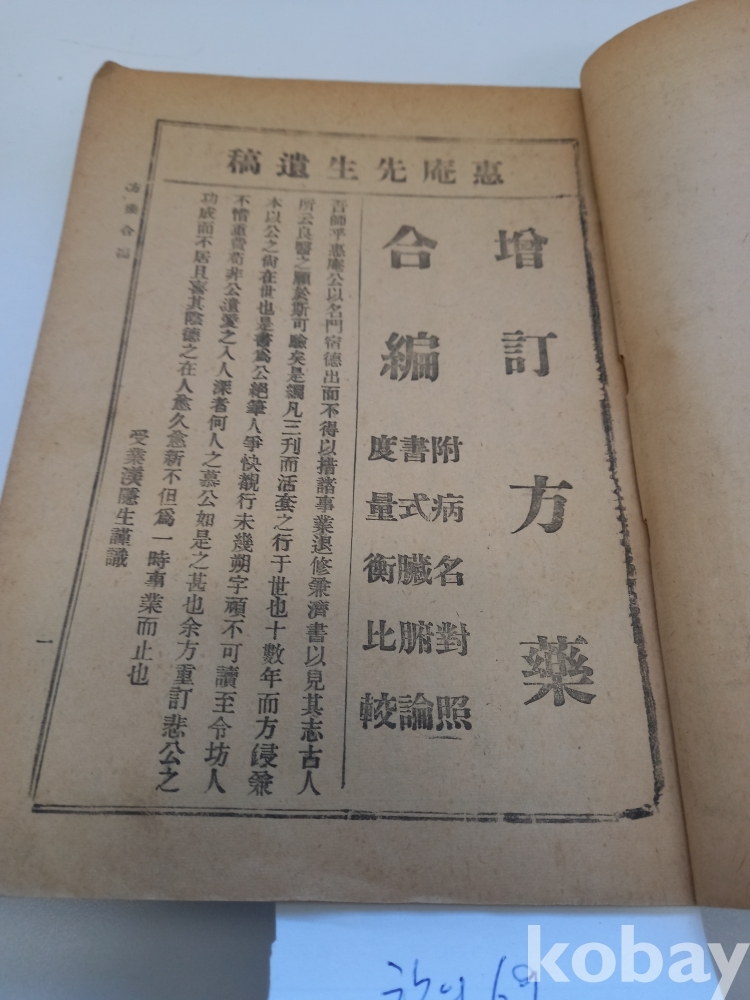 惠庵先生遺稿
增訂方藥
合編
附病名對照
書式臟腑論
度量衡比較
吾師乎惠庵公以名門宿德出而不得以措諸事業退修兼濟書以見其志古人
所云良醫之願於斯可驗矣是編凡三刊而活套之行于世也十數年而方侵兼
本以公之尙在世也是書爲公絕筆人爭快覩行未幾朔字頑不可讀至令坊人
不惜重費苟非公遺愛之入人深者何人之慕公如是之甚也余方重訂悲公之
功成而不居且喜其陰德之在人愈久愈新不但爲一時事業而止也
受業漢隱生謹識
方藥合編
一
69
kobay